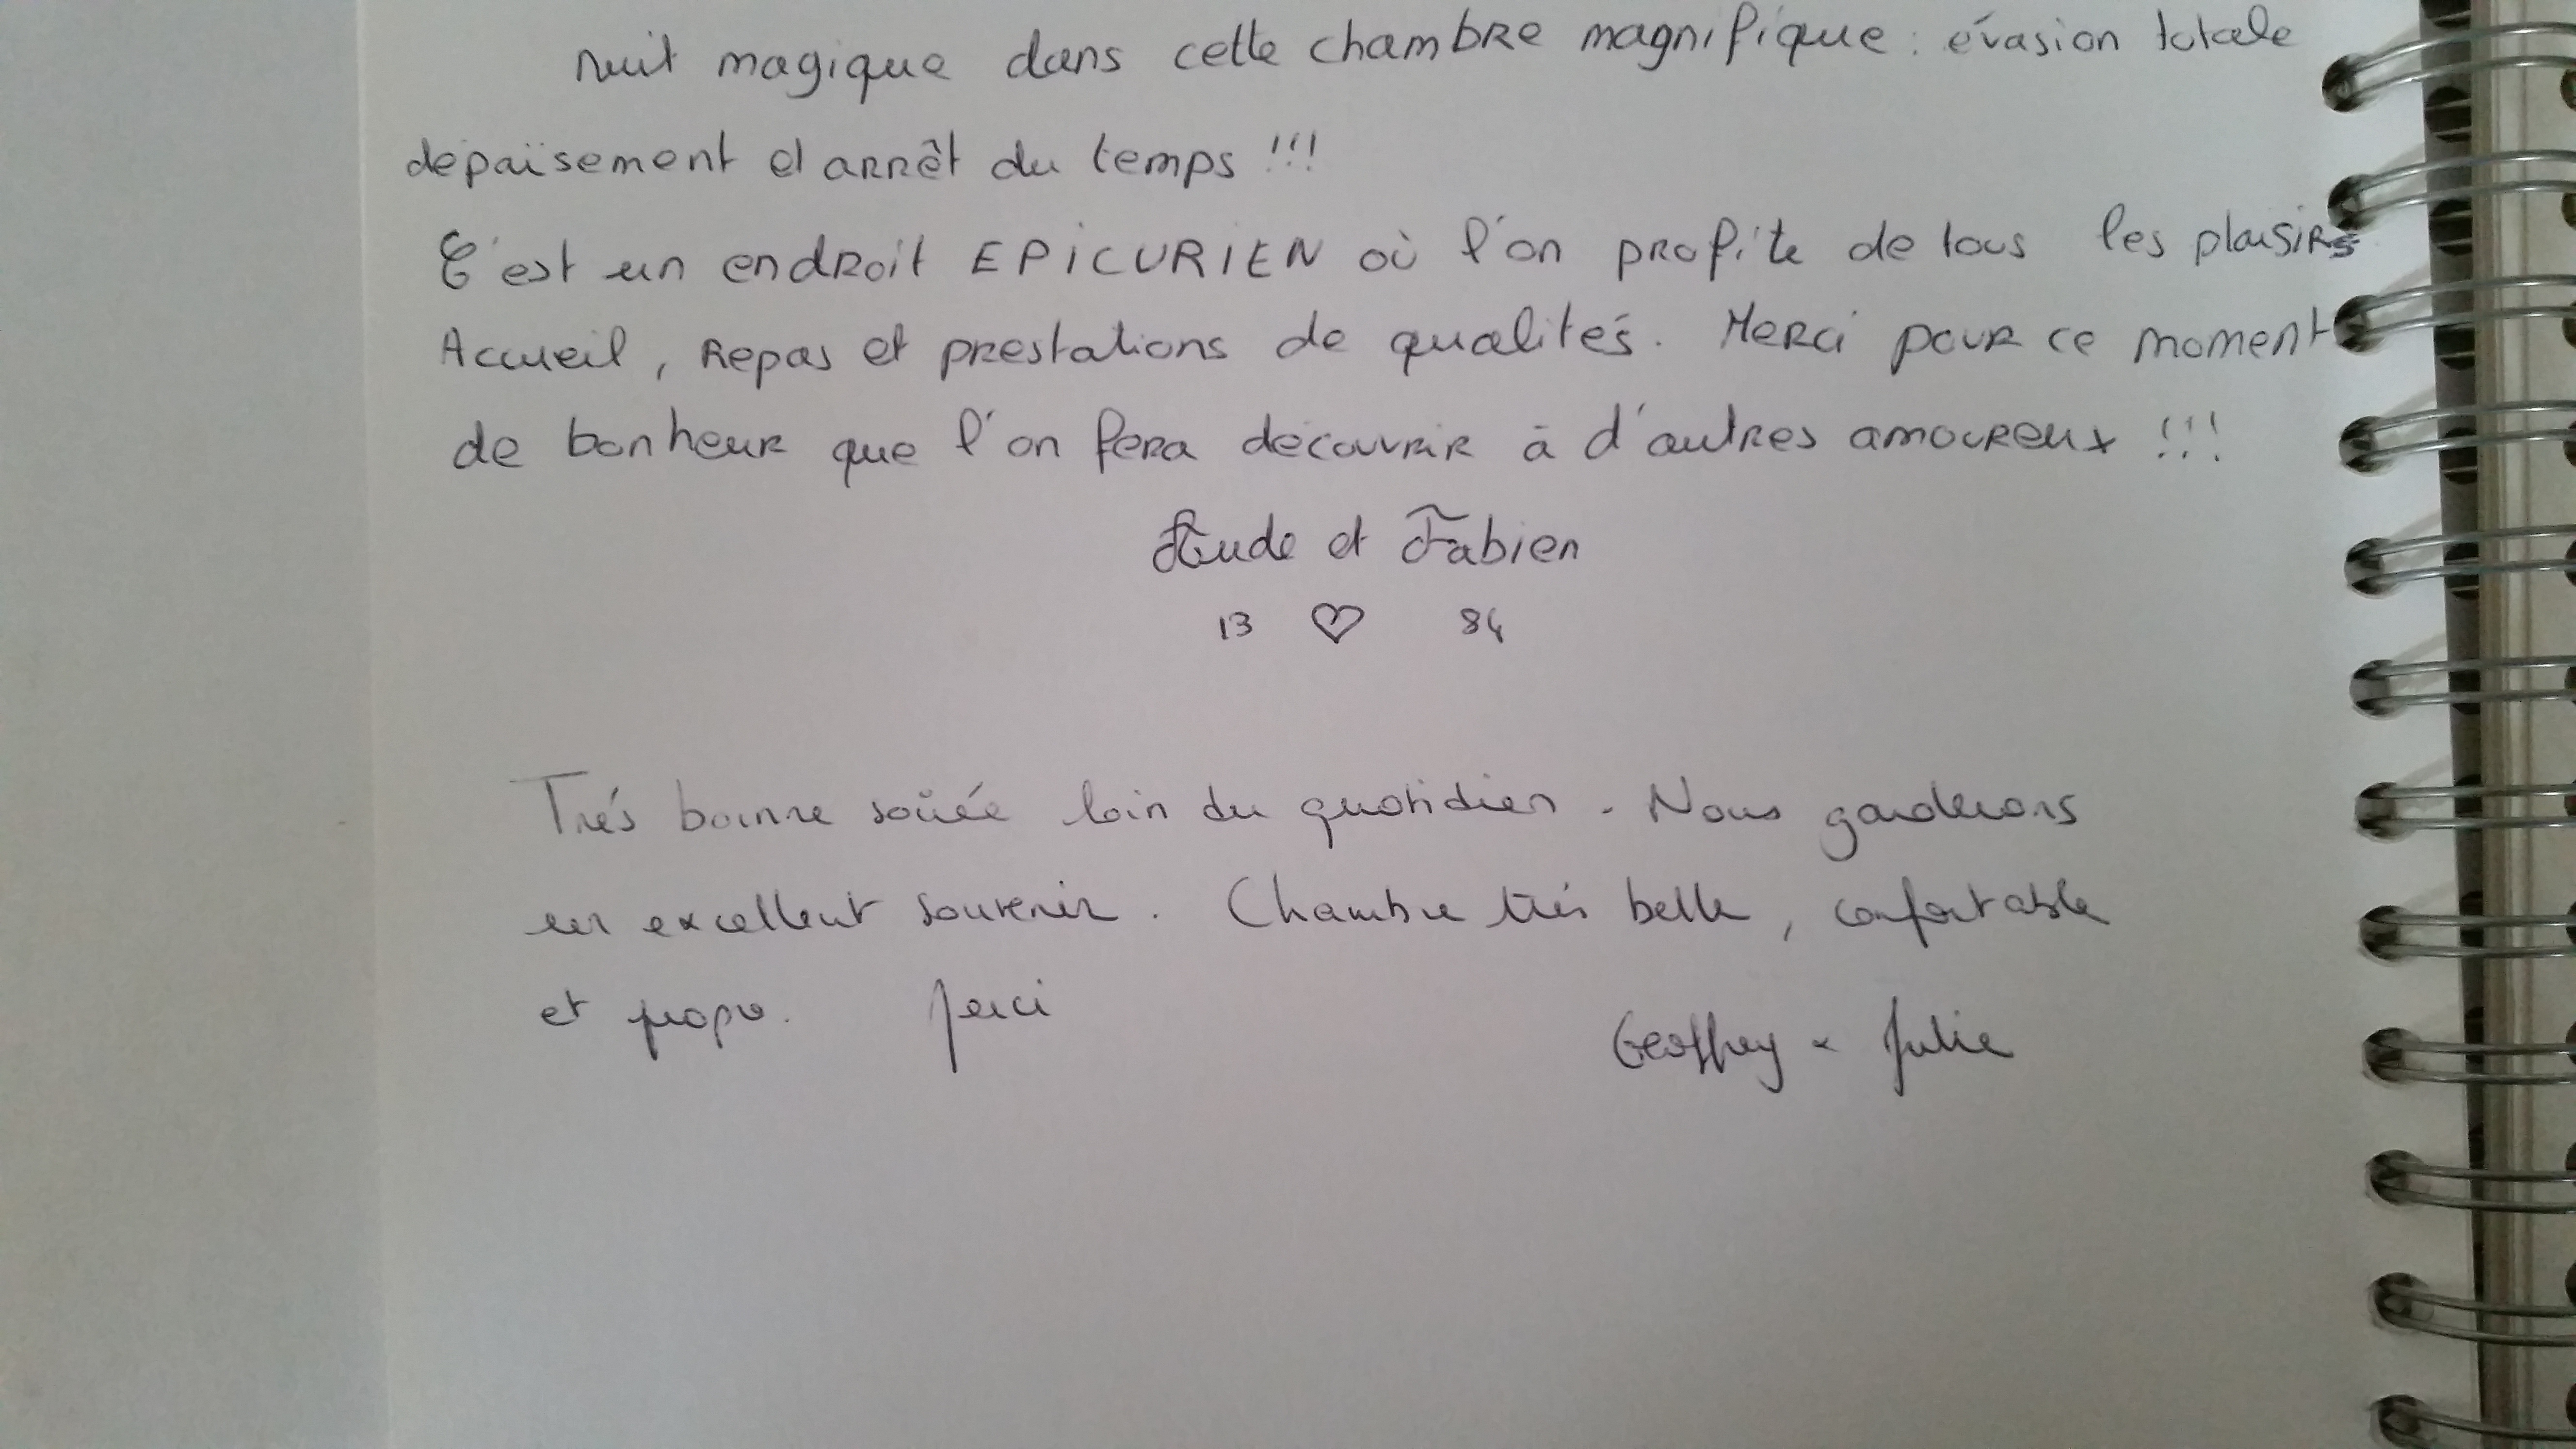 Nuit magique dans cette chambre magnifique : évasion totale
dépaïsement et arrêt du temps !!!
C'est un endroit EPICURIEN où l'on profite de tous les plaisirs
Accueil, Repas et prestations de qualités. Merci pour ce moment
de bonheur que l'on fera découvrir à d'autres amoureux !!!
Aude et Fabien
13 ♡ 84
Trés bonne soirée loin du quotidien. Nous garderons
un excellent souvenir. Chambre trés belle, confortable
et propre. Merci
Geoffrey & Julie